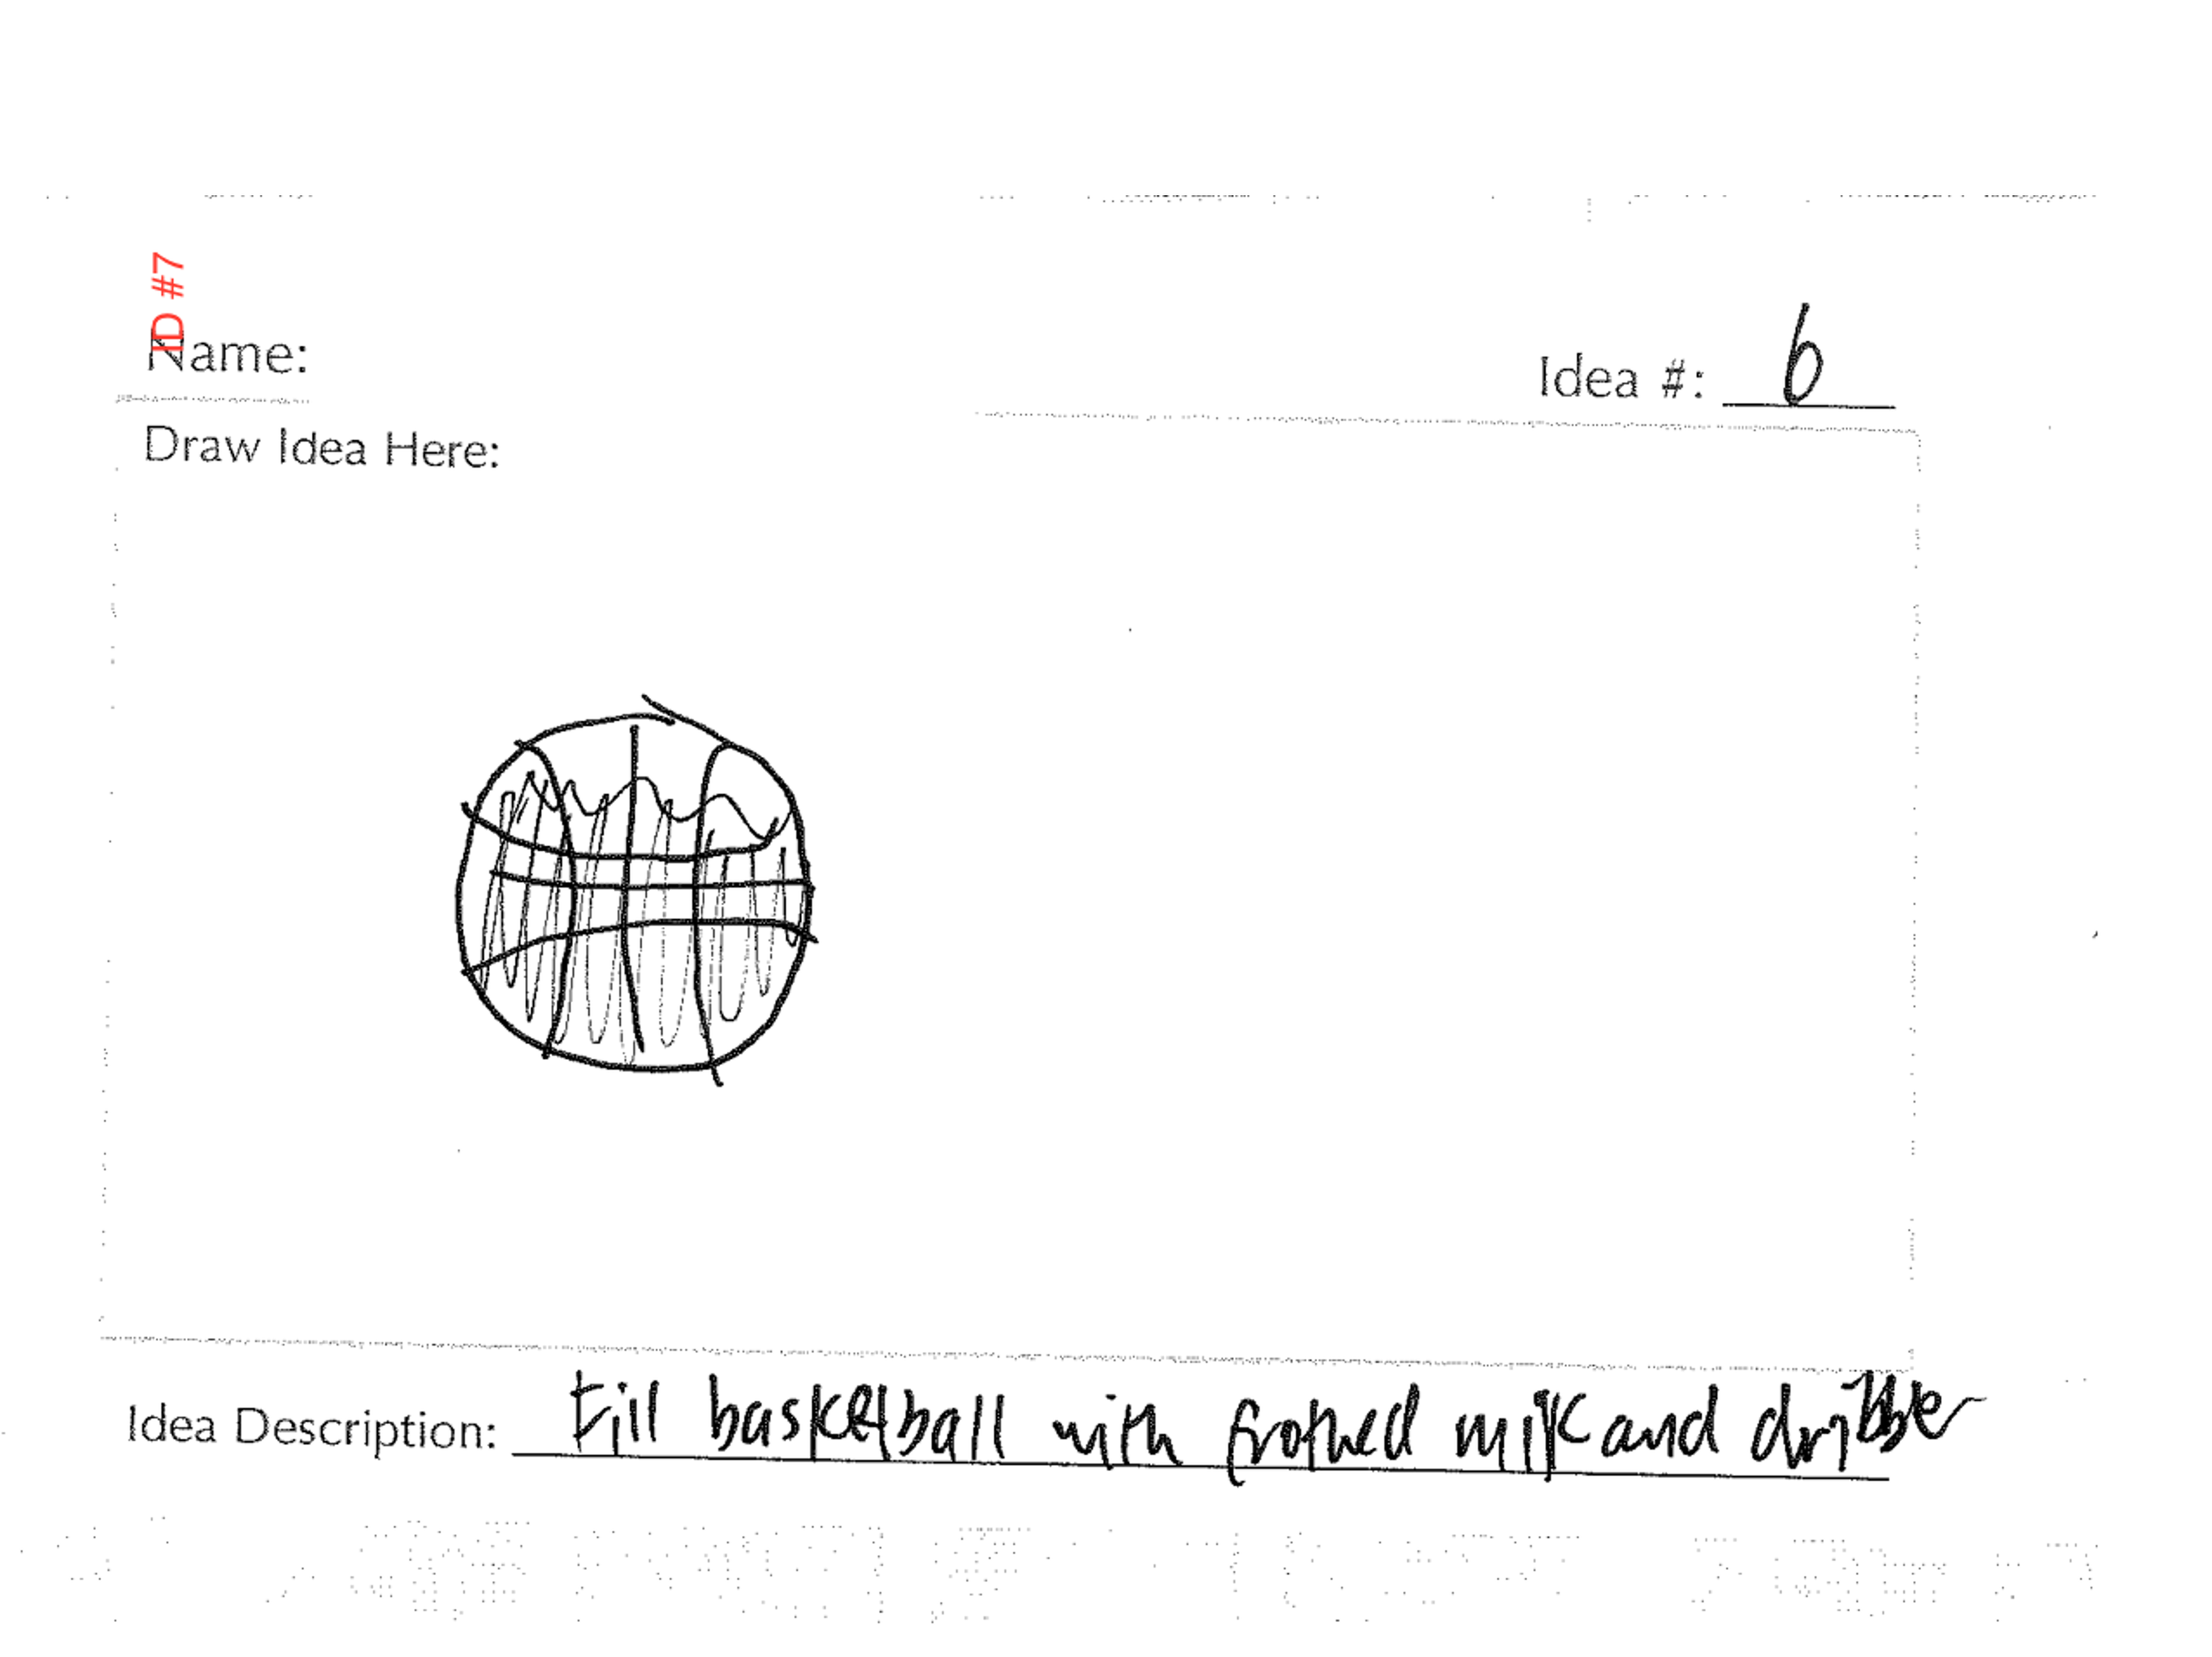 ID #7
Name:
Idea #: 6
Draw Idea Here:
Idea Description: Fill basketball with frothed milk and dribble